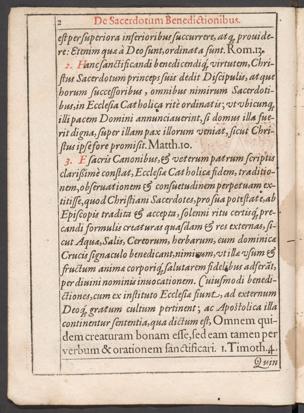 2 De Sacerdotum Benedictionibus.
est per superiora inferioribus succurrere, atq, provide-
re: Etenim quæ à Deo sunt, ordinata sunt. Rom. 13.
2. Hanc sanctificandi benedicendiq, virtutem, Chri-
stus Sacerdotum princeps suis dedit Discipulis, at que
horum successoribus, omnibus nimirum Sacerdoti-
bus, in Ecclesia Catholica ritè ordinatis; vt vbicunq,
illi pacem Domini annunciauerint, si domus illa fue-
rit digna, super illam pax illorum veniat, sicut Chri-
stus ipse fore promisit. Matth. 10.
3. E sacris Canonibus, & veterum patrum scriptis
clarissimè constat, Ecclesiæ Catholicæ fidem, traditio-
nem, observationem & consuetudinem perpetuam ex-
titisse, quod Christiani Sacerdotes, pro sua potestate, ab
Episcopis tradita & accepta, solenni ritu certisq, pre-
candi formulis creaturas quasdam & res externas, si-
cut Aqua, Salis, Cereorum, herbarum, cum dominicæ
Crucis signaculo benedicant, nimirum, vt illa vsum &
fructum animæ corporiq, salutarem fidelibus adferāt,
per diuini nominis inuocationem. Cuiusmodi benedi-
ctiones, cum ex instituto Ecclesiæ fiunt, ad externum
Deoq, gratum cultum pertinent; ac Apostolica illa
continentur sententia, qua dictum est, Omnem qui-
dem creaturam bonam esse, sed eam tamen per
verbum & orationem sanctificari. 1. Timoth. 4.
Quin